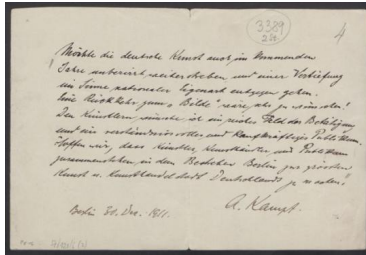 3389
4
Möchte die deutsche Kunst auch im kommenden
Jahre unbeirrt weiterstreben und einer Vertiefung
im Sinne nationaler Eigenart entgegen gehen.
Eine Rückkehr zum „Bilde" wäre also zu wünschen!
Den Künstlern wünsche ich ein reiches Feld der Betätigung
und ein verständnisvolles und kaufkräftiges Publikum.
Hoffen wir, dass Künstler, Kunsthändler und Publikum
zusammenstehen, in dem Bestreben Berlin zur grössten
Kunst u. Kunsthandelsstadt Deutschlands zu machen.
Berlin 30. Dez. 1911.
A. Kampf.